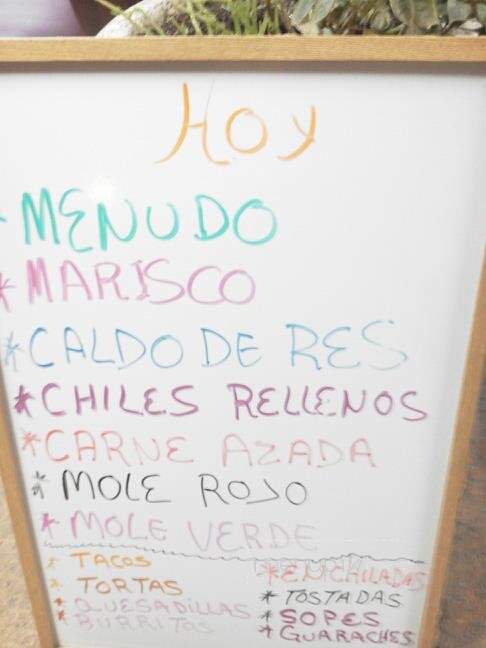 HOY
* MENUDO
* MARISCO
* CALDO DE RES
* CHILES RELLENOS
* CARNE AZADA
* MOLE ROJO
* MOLE VERDE
* TACOS
* TORTAS
* QUESADILLAS
* BURRITOS
* ENCHILADAS
* TOSTADAS
* SOPES
* GUARACHES